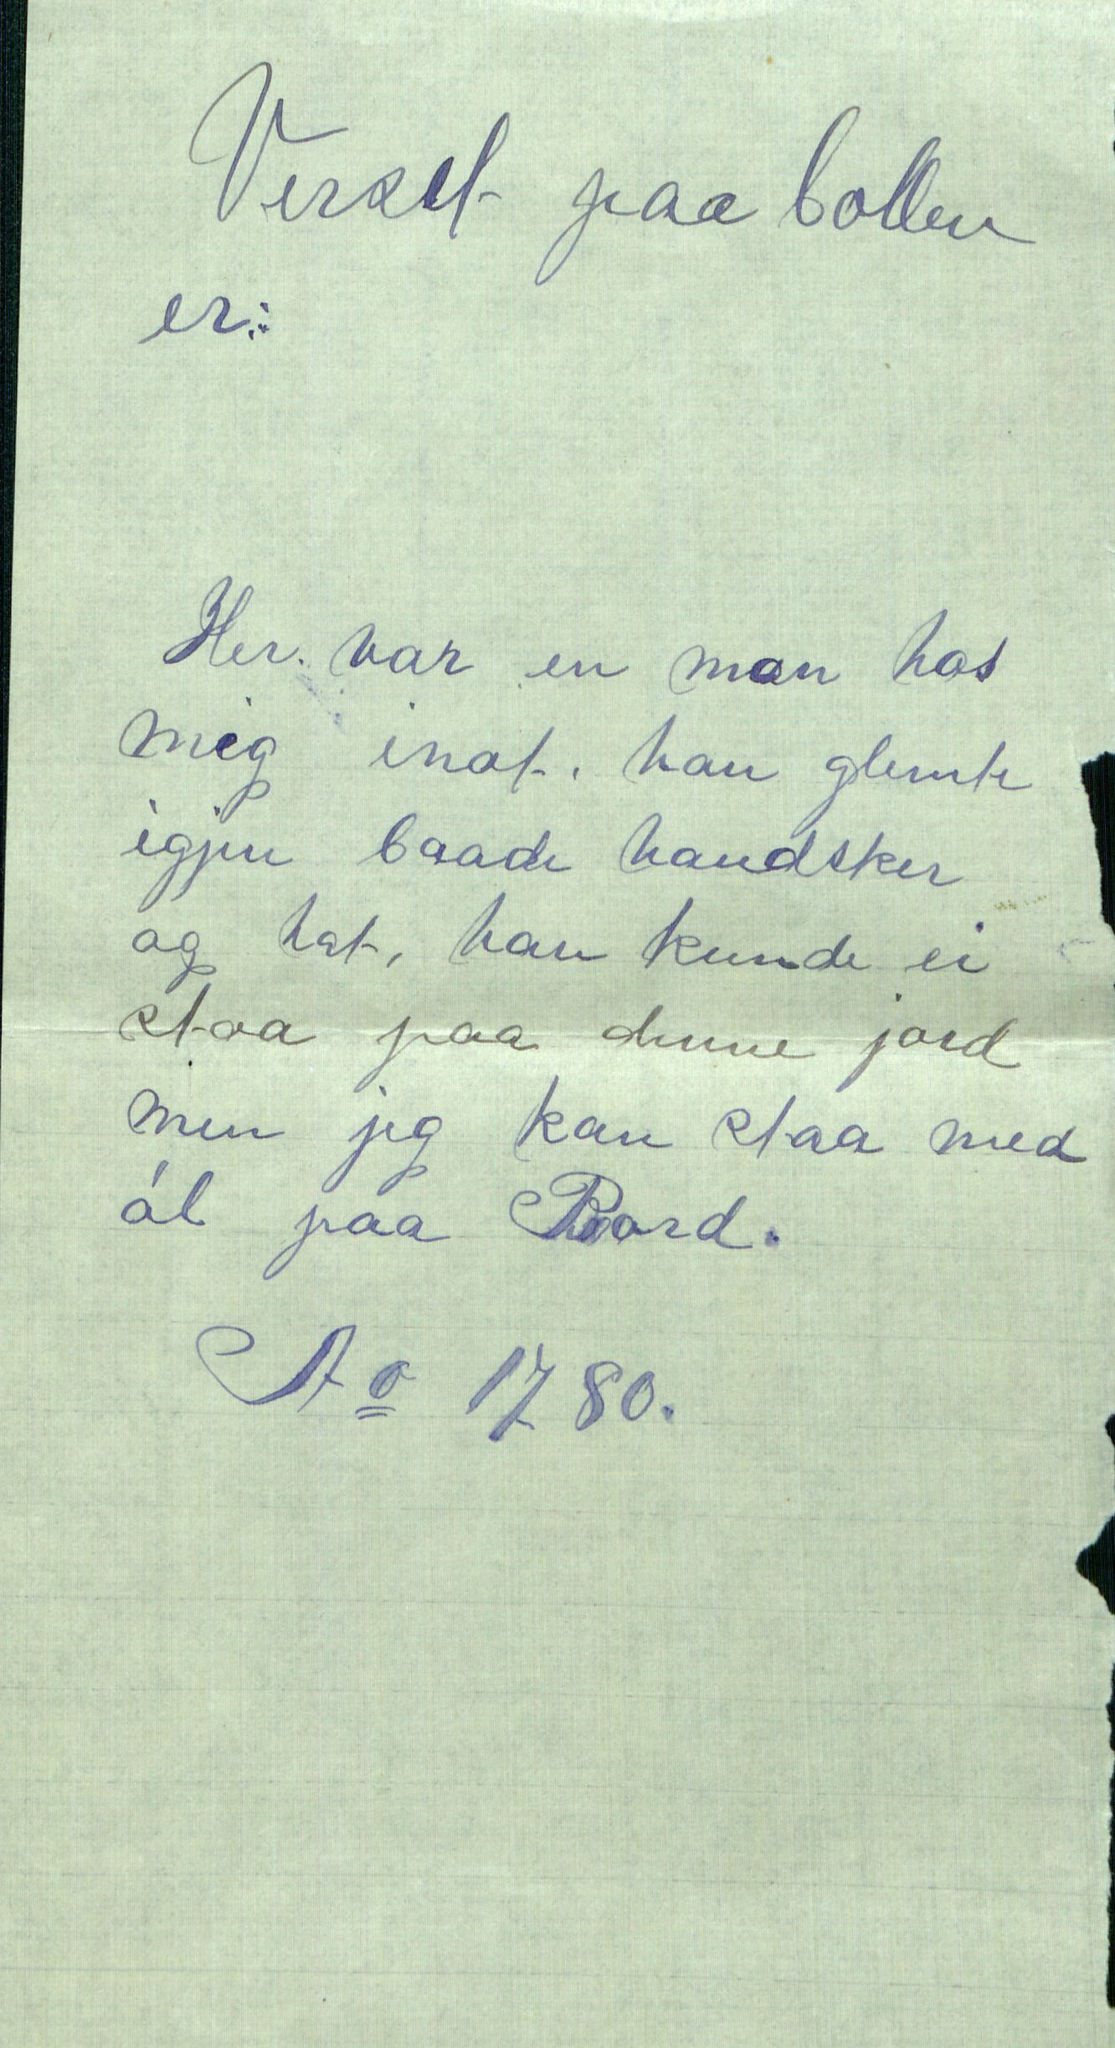 Verset paa bollen
er:
Her var en man hos
mig inat, han glemte
igjen baade handsker
og hat, han kunde ei
staa paa denne jord
men jeg kan staa med
øl paa Bord.
Ao 1780.